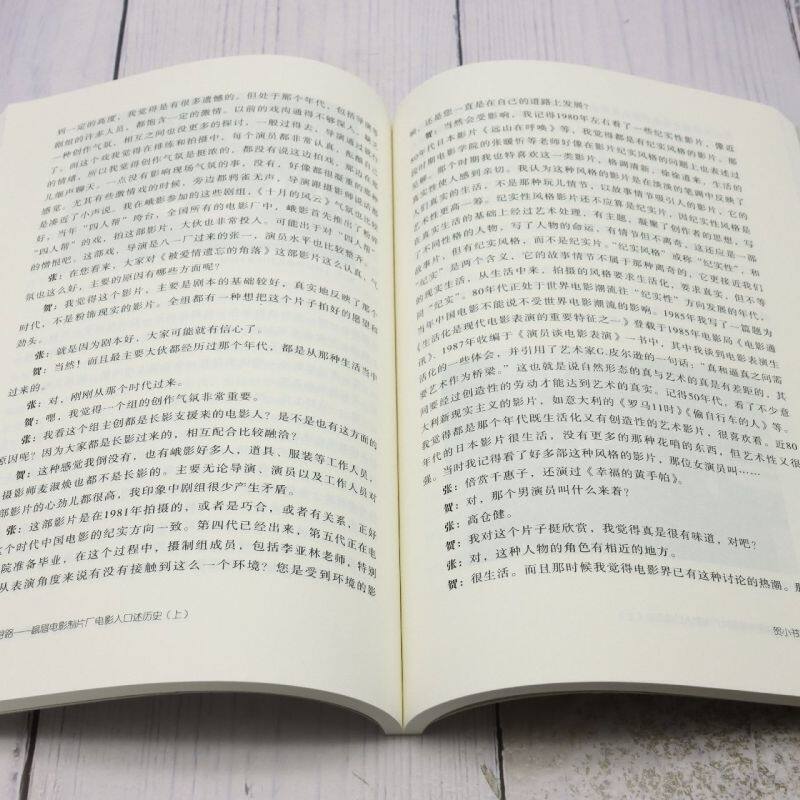 到一定的高度，我觉得是有很多遗憾的。但处于那个年代，包括导演等
剧组的许多人员，都饱含一定的激情。以前的戏沟通得不够深入，
一种创作气氛，相互之间也没更多的探讨，一般过得去，导演通过就行
了。而这个戏我觉得在排练和拍摄中，每个演员都非常认真，酝酿自己
的情绪，所以我觉得创作气氛是挺浓的，都没有说这边拍戏，那边在那
儿像声聊天。一点没有影响现场气氛的事，没有，好像都很凝重的
感觉。尤其有些激情戏的时候，旁边都鸦雀无声，导演跟摄影师说话都
是凑近了小声说。我在峨影参加的这些剧组，《十月的风云》气氛也比较
好，当年“四人帮”垮台，全国所有的电影厂中，峨影首先推出了粉碎
“四人帮”的戏，拍这部影片，大伙也非常投入。可能出于对“四人帮”
的憎恨吧。这部戏，导演是八一厂过来的张一，演员水平也比较整齐。
张：在您看来，大家对《被爱情遗忘的角落》这部影片这么认真，气
氛也这么好，主要的原因有哪些方面呢？
贺：我觉得这个影片，主要是剧本的基础较好，真实地反映了那个
时代，不是粉饰现实的影片。全组都有一种想把这个片子拍好的愿望和
劲头。
张：就是因为剧本好，大家可能就有信心了。
贺：当然！而且最主要大伙都经历过那个年代，都是从那种生活当中
过来的。
张：对，刚刚从那个时代过来。
贺：嗯，我觉得一个组的创作气氛非常重要。
张：我看这个组主创都是长影支援来的电影人？是不是也有这方面的
原因呢？因为大家都是长影过来的，相互配合比较融洽？
贺：这种感觉我倒没有，也有峨影好多人，道具、服装等工作人员，
摄影师麦淑焕也都不是长影的。主要无论导演、演员以及工作人员对
部影片的心劲儿都很高，我印象中剧组很少产生矛盾。
张：这部影片是在1981年拍摄的，或者是巧合，或者有关系，正好
这个时代中国电影的纪实方向一致。第四代已经出来，第五代正在电
院准备毕业，在这个过程中，摄制组成员，包括李亚林老师，特别
从表演角度来说有没有接触到这么一个环境？您是受到环境的影
路——峨眉电影制片厂电影人口述历史（上）
响，还是您一直是在自己的道路上发展？
贺：当然会受影响，我记得1980年左右看了一些纪实性影片，像近
80年代日本影片《远山在呼唤》等，我觉得都是有纪实风格的影片。那
段时期电影学院的张暖忻等老师好像在影片纪实风格的问题上也表述过
见解。那个时期我也特喜欢这一类影片，格调清新，徐徐道来，生活的
真实性使人感到亲切。我认为这种风格的影片是在淡淡的笔调中反映了
人们真实的生活，不是那种玩儿情节，以故事情节吸引人的影片，它的
艺术性更高一筹。纪实性风格影片还不应算是纪实片，因纪实性风格是
在真实生活的基础上经过艺术处理，有主题，凝聚了创作者的思想，写
了不同性格的人物，写了人物的命运，有情节但不离奇，这还应是一部
故事片，但有纪实风格，而不是纪实片。“纪实风格”或称“纪实性”，和
“纪实”是两个含义，它的故事情节不属于那种离奇的，它更接近我们
的现实生活，从生活中来，拍摄的风格要求生活化，要求真实，但不等
同“纪实”。80年代正处于世界电影潮流往“纪实性”方向发展的年代，
当年中国电影不能说不受世界电影潮流的影响。1985年我写了一篇题为
《生活化是现代电影表演的重要特征之一》登载于1985年电影局《电影通
讯》、1987年收编于《演员谈电影表演》一书中，其中我谈到电影表演生
活化的一些体会，并引用了艺术家G.皮尔逊的一句话：“真和逼真之间需
要艺术作为桥梁。”这也就是说自然形态的真与艺术的真是有差距的，其
间要经过创造性的劳动才能达到艺术的真实。记得50年代，看了不少意
大利新现实主义的影片，如意大利的《罗马11时》《偷自行车的人》等。
我觉得都是那个年代既生活化又有创造性的艺术影片，很喜欢看。近80
年代的日本影片很生活，没有更多的那种花哨的东西，但艺术性又很
强。当时我记得看了好多部这种风格的影片，那位女演员叫……
张：倍赏千惠子，还演过《幸福的黄手帕》。
贺：对，那个男演员叫什么来着？
张：高仓健。
贺：我对这个片子挺欣赏，我觉得真是很有味道，对吧？
张：对，这种人物的角色有相近的地方。
贺：很生活。而且那时候我觉得电影界已有这种讨论的热潮。那
贺小书